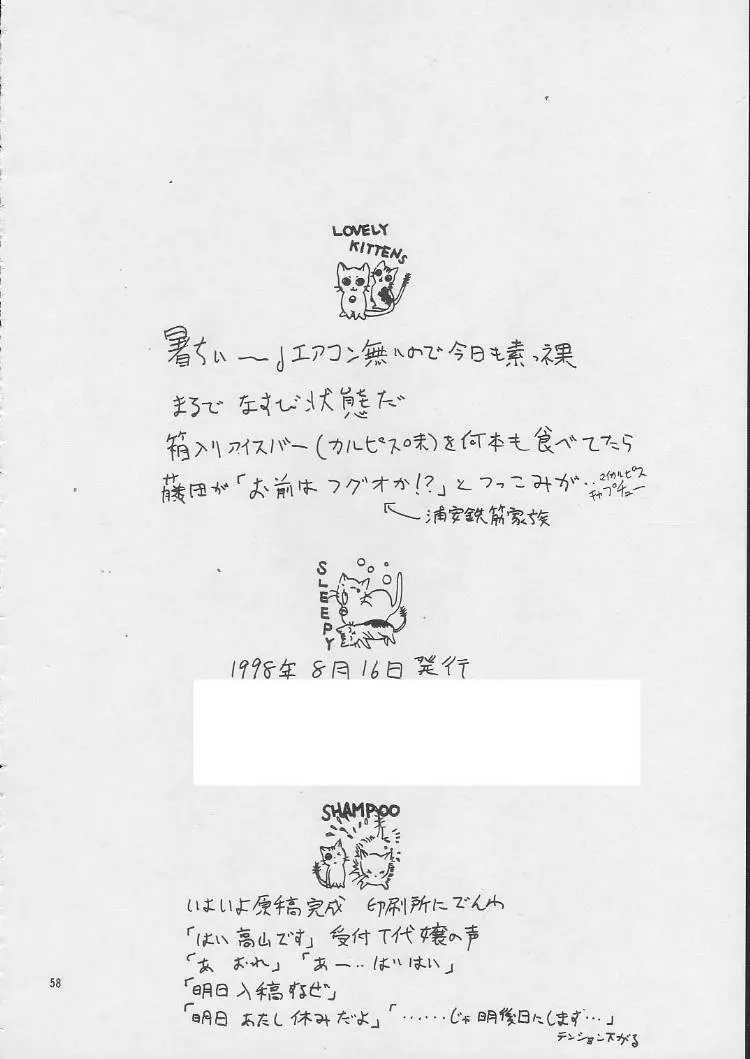 LOVELY
KITTENS
暑ちぃ〜♩エアコン無いので今日も素っ裸
まるでなすび状態だ
箱入りアイスバー(カルピス味)を何本も食べてたら
藤田が「お前はフグオか!?」とつっこみが‥
カルピス
チャプチュー
浦安鉄筋家族
SLEEPY
1998年8月16日発行
SHAMPOO
いよいよ原稿完成 印刷所にでんわ
「はい高山です」受付T代嬢の声
「あ おれ」「あー‥はいはい」
「明日入稿するぜ」
「明日 あたし休みだよ」「‥‥‥じゃ明後日にします…」
テンション下がる
58